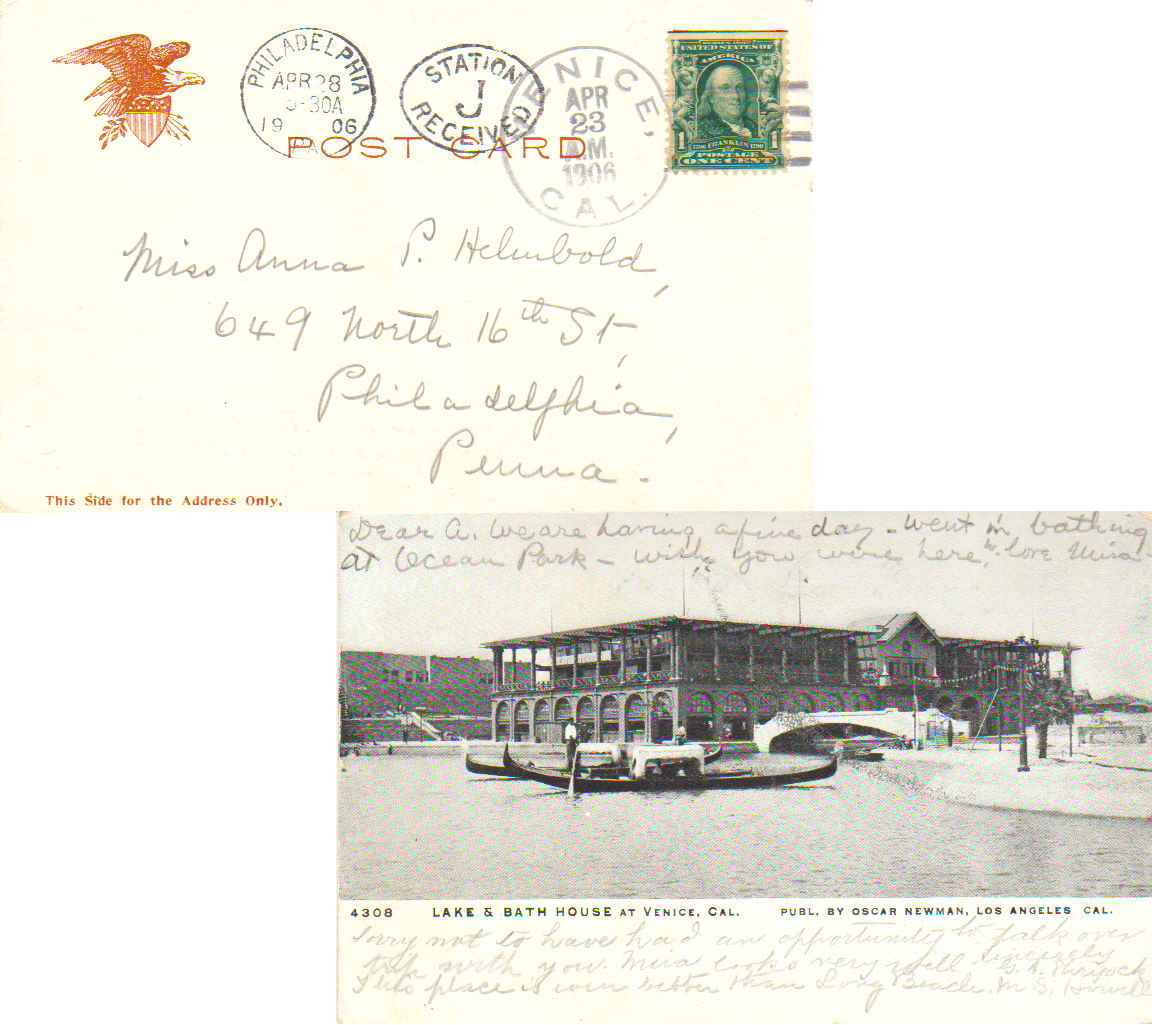 PHILADELPHIA
APR 28
-30A
19 06
PA
STATION
J
RECEIVED
VENICE,
APR
23
A.M.
1906
CAL.
UNITED STATES OF
AMERICA
1 1
1706 FRANKLIN 1790
POSTAGE
ONE CENT
POST CARD
Miss Anna P. Helmbold,
649 North 16th St,
Philadelphia,
Penna.
This Side for the Address Only.
Dear A. We are having a fine day - went in bathing
at Ocean Park - wish you were here. love Mira -
4308 LAKE & BATH HOUSE AT VENICE, CAL. PUBL. BY OSCAR NEWMAN, LOS ANGELES CAL.
Sorry not to have had an opportunity to talk over
trip with you. Mira looks very well. Sincerely
This place is even better than Long Beach. M. S. Howell